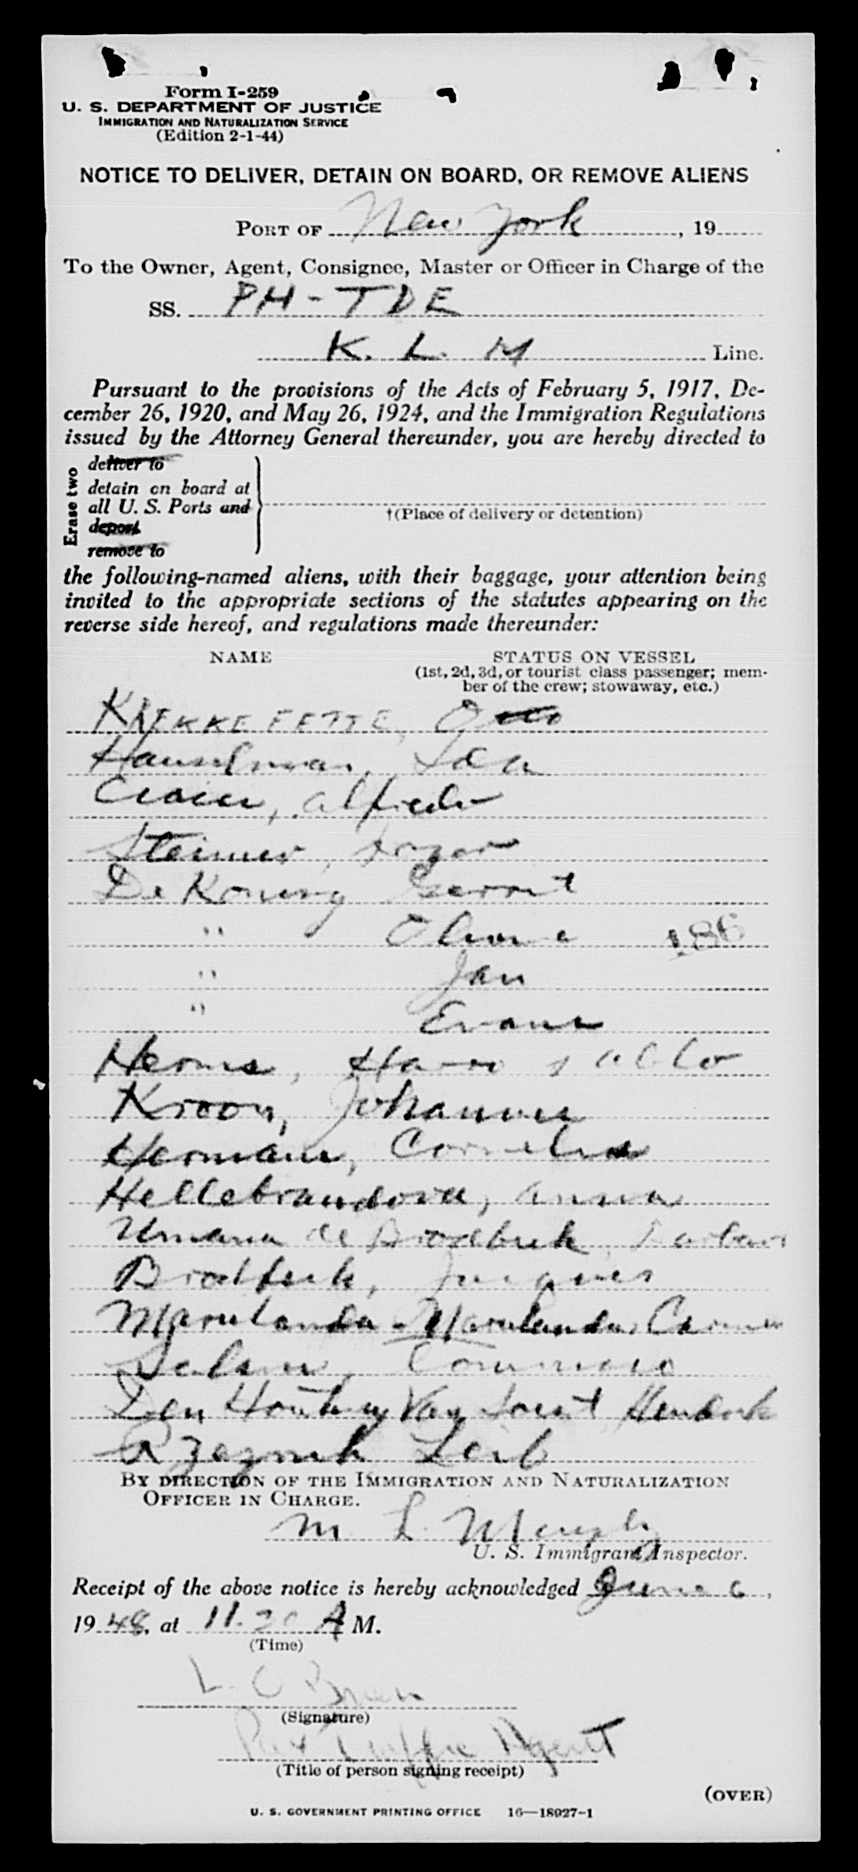 Form I-259
U. S. DEPARTMENT OF JUSTICE
IMMIGRATION AND NATURALIZATION SERVICE
(Edition 2-1-44)
NOTICE TO DELIVER, DETAIN ON BOARD, OR REMOVE ALIENS
PORT OF New York, 19
To the Owner, Agent, Consignee, Master or Officer in Charge of the
SS. PH-TDE
K. L. M Line.
Pursuant to the provisions of the Acts of February 5, 1917, De-
cember 26, 1920, and May 26, 1924, and the Immigration Regulations
issued by the Attorney General thereunder, you are hereby directed to
Erase two
deliver to
detain on board at
all U. S. Ports and
deport
remove to
†(Place of delivery or detention)
the following-named aliens, with their baggage, your attention being
invited to the appropriate sections of the statutes appearing on the
reverse side hereof, and regulations made thereunder:
NAME STATUS ON VESSEL
(1st, 2d, 3d, or tourist class passenger; mem-
ber of the crew; stowaway, etc.)
Otto
Ida
Alfredo
Steiner,
De Koning Gerrit
" 186
" Jan
"
Herms,
Kroon, Johannes
Hermans, Cornelis
Hellebrandova, Anna
Umana de Brodbeck,
Brodbeck, Jacques
Marulanda - Marulanda, Carmen
Tommaso
Den Van Hendrik
Leib
BY DIRECTION OF THE IMMIGRATION AND NATURALIZATION
OFFICER IN CHARGE.
M. L.
U. S. Immigrant Inspector.
Receipt of the above notice is hereby acknowledged June 6,
1948, at 11.20 A M.
(Time)
L. O Brien
(Signature)
Agent
(Title of person signing receipt)
(OVER)
U. S. GOVERNMENT PRINTING OFFICE 16—18927-1